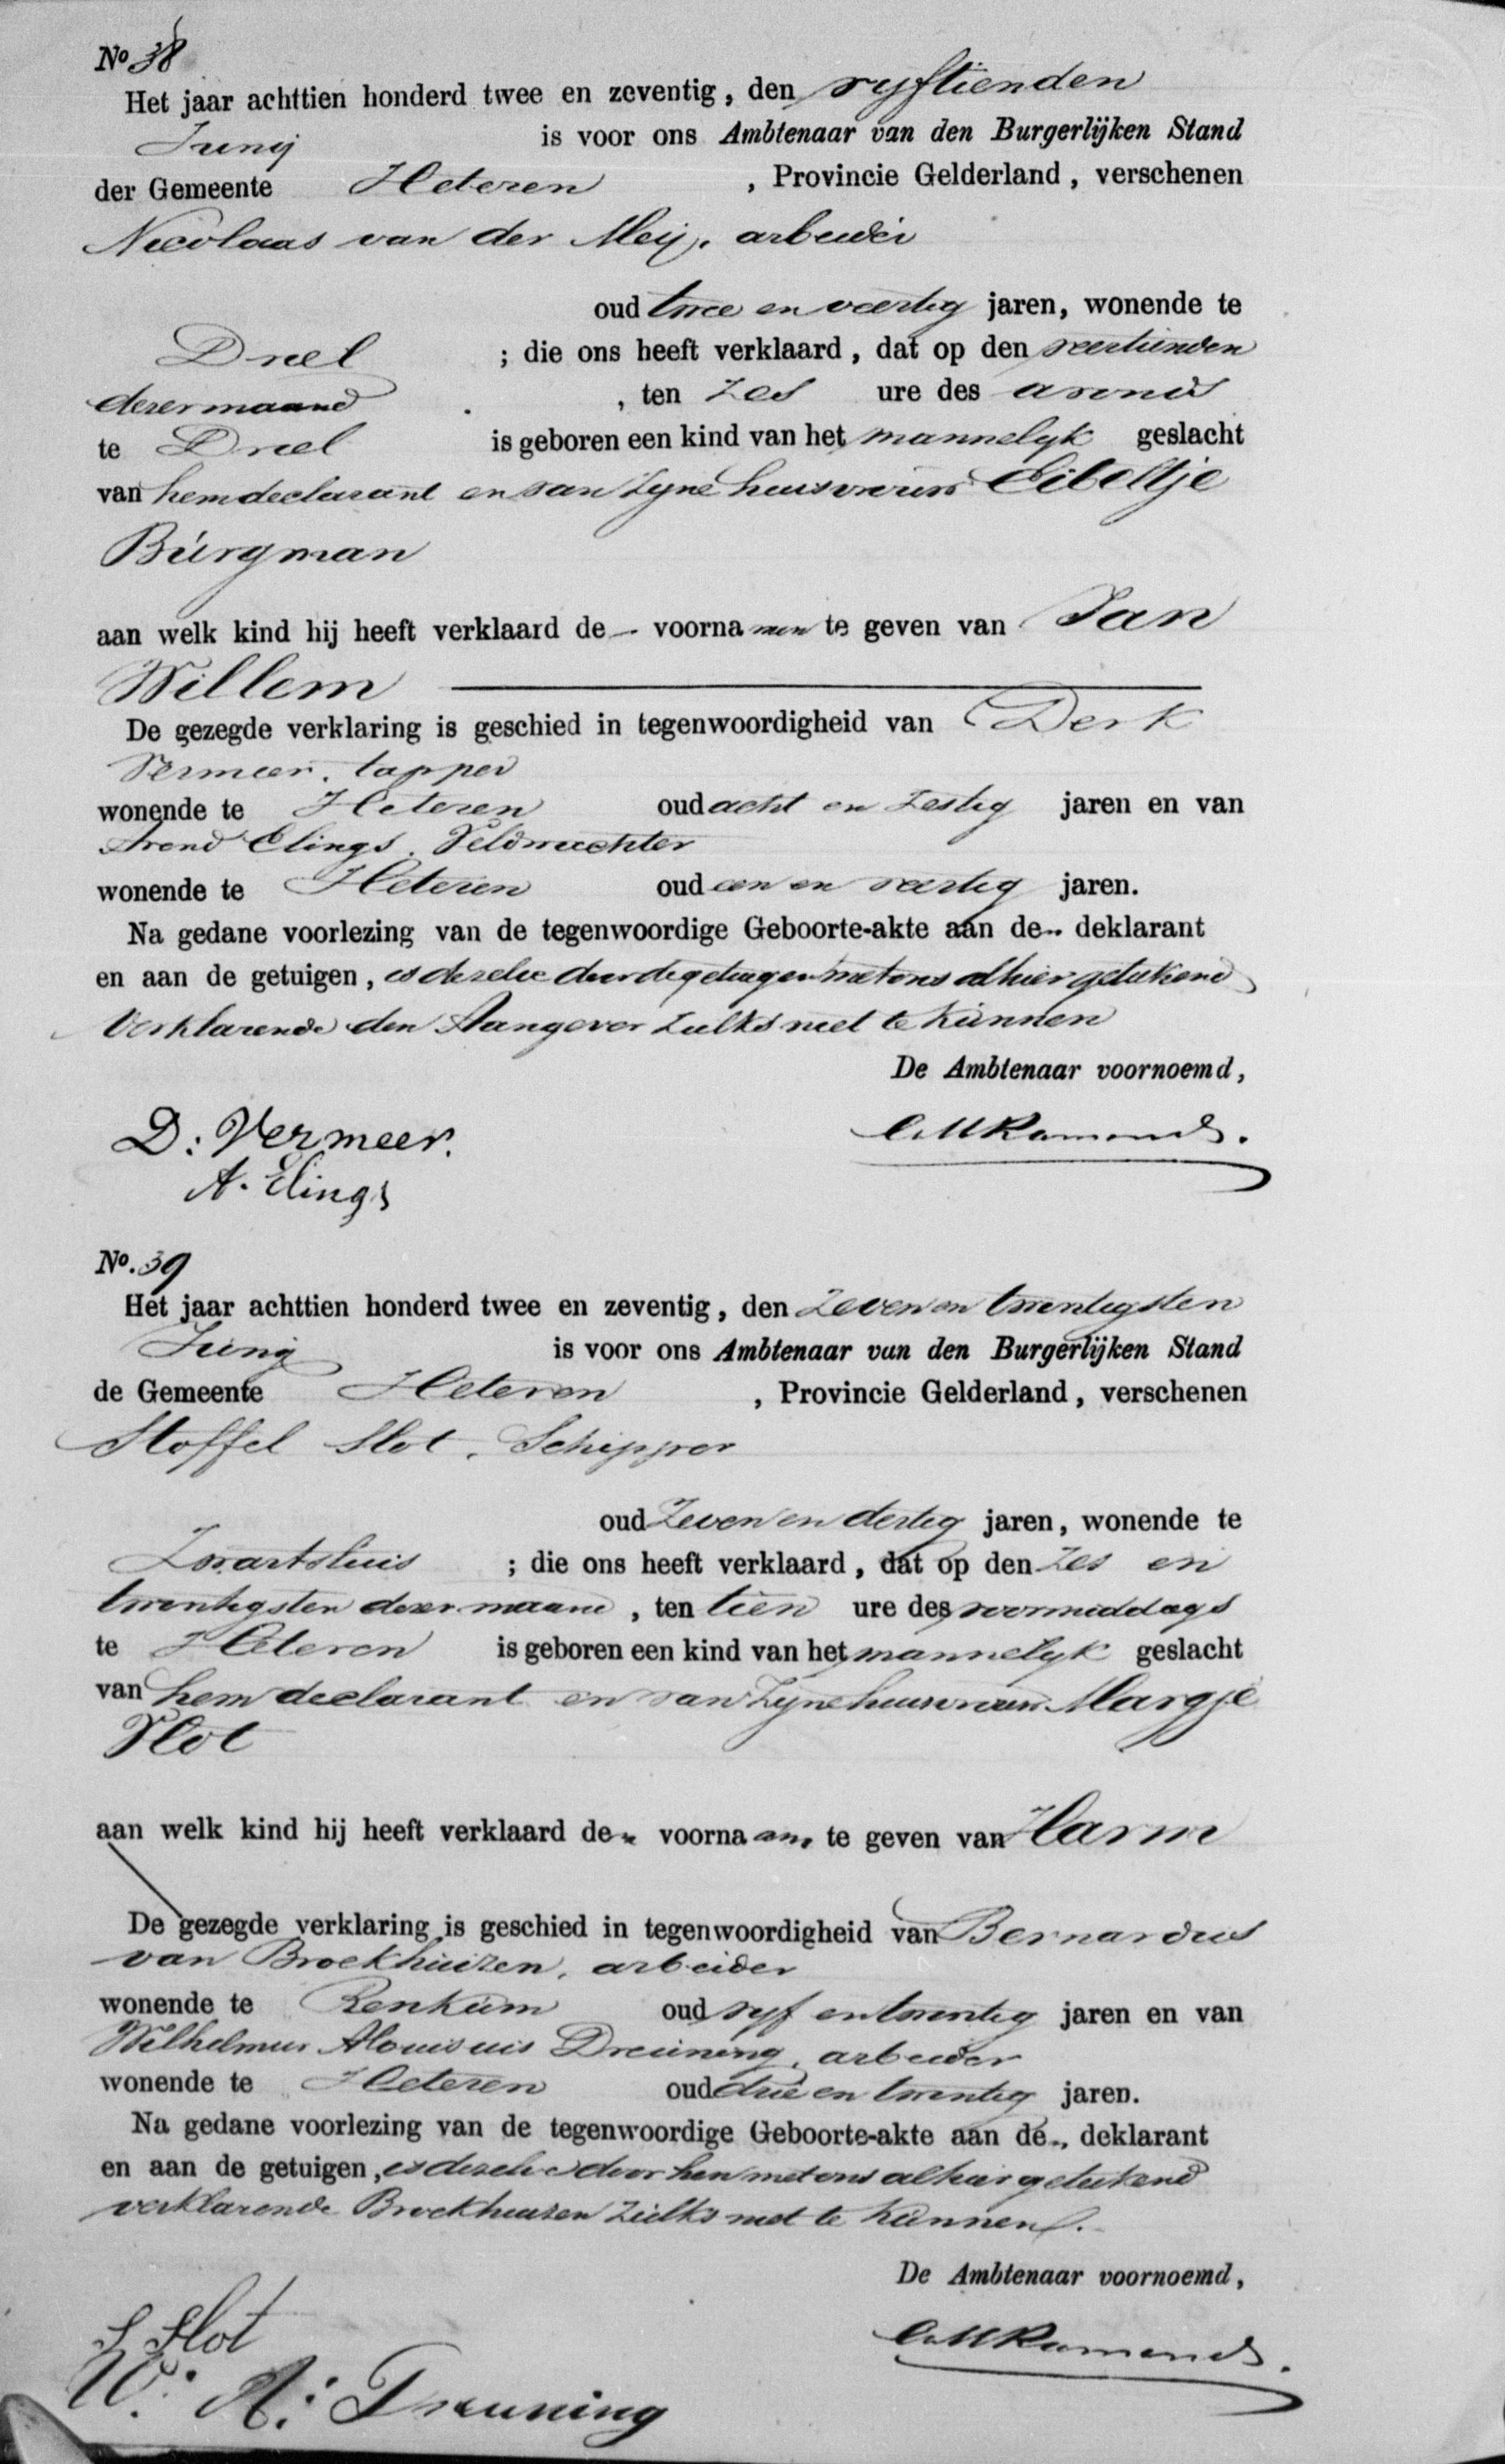 No 38
Het jaar achttien honderd twee en zeventig, den vyftienden
Junij is voor ons Ambtenaar van den Burgerlijken Stand
der Gemeente Heteren, Provincie Gelderland, verschenen
Nicolaas van der Meij, arbeider
oud twee en veertig jaren, wonende te
Driel; die ons heeft verklaard, dat op den veertienden
dezer maand, ten zes ure des avonds
te Driel is geboren een kind van het mannelyk geslacht
van hem declarant en van zyne huisvrouw Eibeltje
Burgman
aan welk kind hij heeft verklaard de voornamen te geven van Jan
Willem
De gezegde verklaring is geschied in tegenwoordigheid van Derk
Vermeer, tapper
wonende te Heteren oud acht en zestig jaren en van
Arend Elings, Veldwachter
wonende te Heteren oud een en veertig jaren.
Na gedane voorlezing van de tegenwoordige Geboorte-akte aan de deklarant
en aan de getuigen, is dezelve door de getuigen met ons alhier geteekend
Verklarende den Aangever zulks niet te kunnen
De Ambtenaar voornoemd,
D: Vermeer.
A. Elings
No. 39
Het jaar achttien honderd twee en zeventig, den zeven en twentigsten
Junij is voor ons Ambtenaar van den Burgerlijken Stand
de Gemeente Heteren, Provincie Gelderland, verschenen
Stoffel Slot, Schipper
oud zeven en dertig jaren, wonende te
Zwartsluis; die ons heeft verklaard, dat op den zes en
twentigsten dezer maand, ten tien ure des voormiddags
te Heteren is geboren een kind van het mannelyk geslacht
van hem declarant en van zyne huisvrouw Margje
Slot
aan welk kind hij heeft verklaard de voornaam te geven van Harm
De gezegde verklaring is geschied in tegenwoordigheid van Bernardus
van Broekhuizen, arbeider
wonende te Renkum oud vyf en twentig jaren en van
Wilhelmus Alouisuis Dreuning, arbeider
wonende te Heteren oud drie en twentig jaren.
Na gedane voorlezing van de tegenwoordige Geboorte-akte aan de deklarant
en aan de getuigen, is dezelve door hen met ons alhier geteekend
verklarende Broekhuizen zulks niet te kunnen.
De Ambtenaar voornoemd,
S Slot
W: A: Dreuning